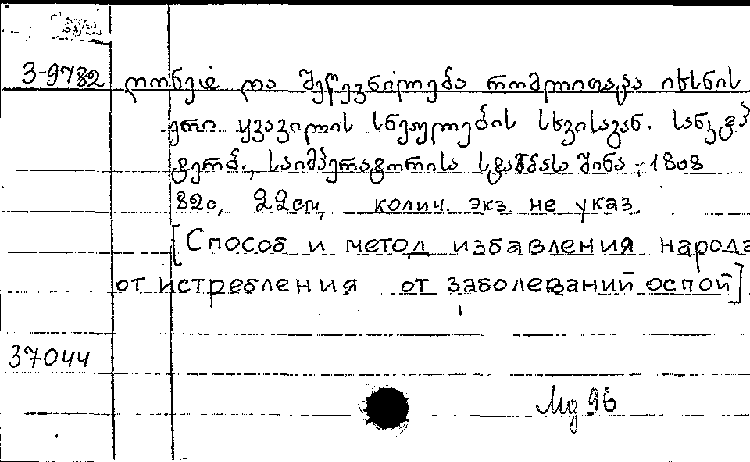 3-9782 ღონე და შეწევნილება რომლითაცა იხსნის
ერი ყვავილის სნეულების სხვისაგან. სანკტპ
ტერბ., საიმპერატორისა სტამბასა შინა, 1808
82с, 22см, колич. экз. не указ.
[Способ и метод избавления народа
от истребления от заболеваний оспой]
37044
Мд 96